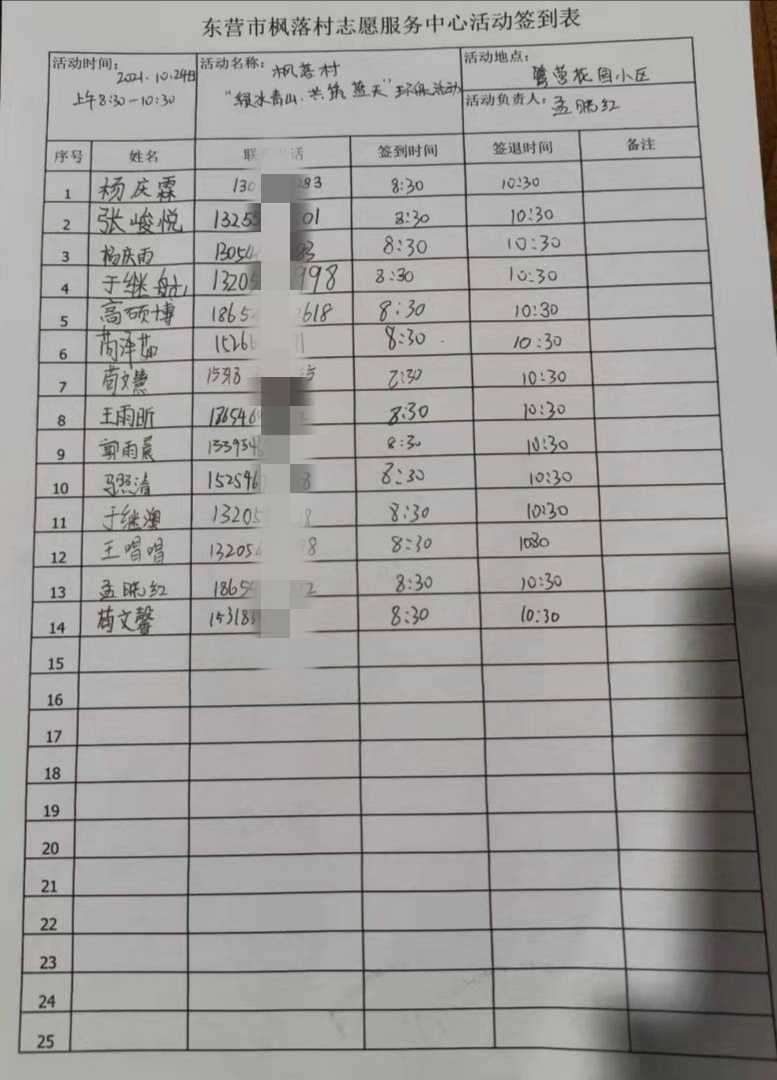 东营市枫落村志愿服务中心活动签到表
活动时间: 2021.10.24日
上午8:30-10:30
活动名称: 枫落村
"绿水青山.共筑蓝天"环保活动
活动地点:
花园小区
活动负责人: 孟晓红
序号 姓名 联 话 签到时间 签退时间 备注
1 杨庆霖 130 283 8:30 10:30
2 张峻悦 13255 01 8:30 10:30
3 杨庆雨 13054 83 8:30 10:30
4 于继舟 13205 998 8:30 10:30
5 高硕博 1865 2618 8:30 10:30
6 苘泽茹 1526 1 8:30 10:30
7 苘文慧 15318 5 8:30 10:30
8 王雨昕 1865464 2 8:30 10:30
9 郭雨晨 1339546 8:30 10:30
10 马熙清 1525467 8 8:30 10:30
11 于继澳 13205 8 8:30 10:30
12 王唱唱 13205 98 8:30 10:30
13 孟晓红 18654 2 8:30 10:30
14 苘文馨 15318 8:30 10:30
15
16
17
18
19
20
21
22
23
24
25